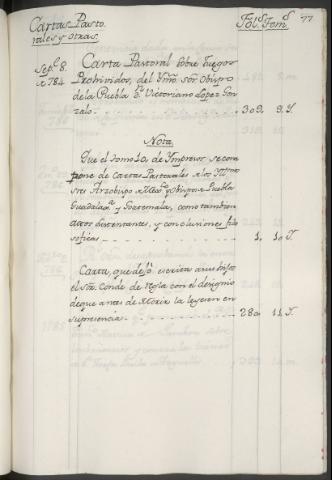 Cartas Pasto- Fol.s Tom.s 77
rales y otras.
Sep.e 8. Carta Pastoral sobre Juegos
784 Prohividos, del Yllmo. Sor. Obispo
de la Puebla Dn. Victoriano Lopez Gon-
zalo. 309. 9. Y.
Nota.
Que el tomo 10. de Ympresos se com-
pone de cartas Pastorales de los Yll.mos
Sres. Arzobispo de Mex.co y Obispos de Puebla
Guadalax.a y Goatemala, como tambien
otros disertantes, y conclusiones filo-
soficas 1. 10. Y.
Carta, que dejó escrita a sus hijos
el Sr. Conde de Regla con el designio
de que antes de abrirla la leyesen en
su presencia 280. 11. Y.